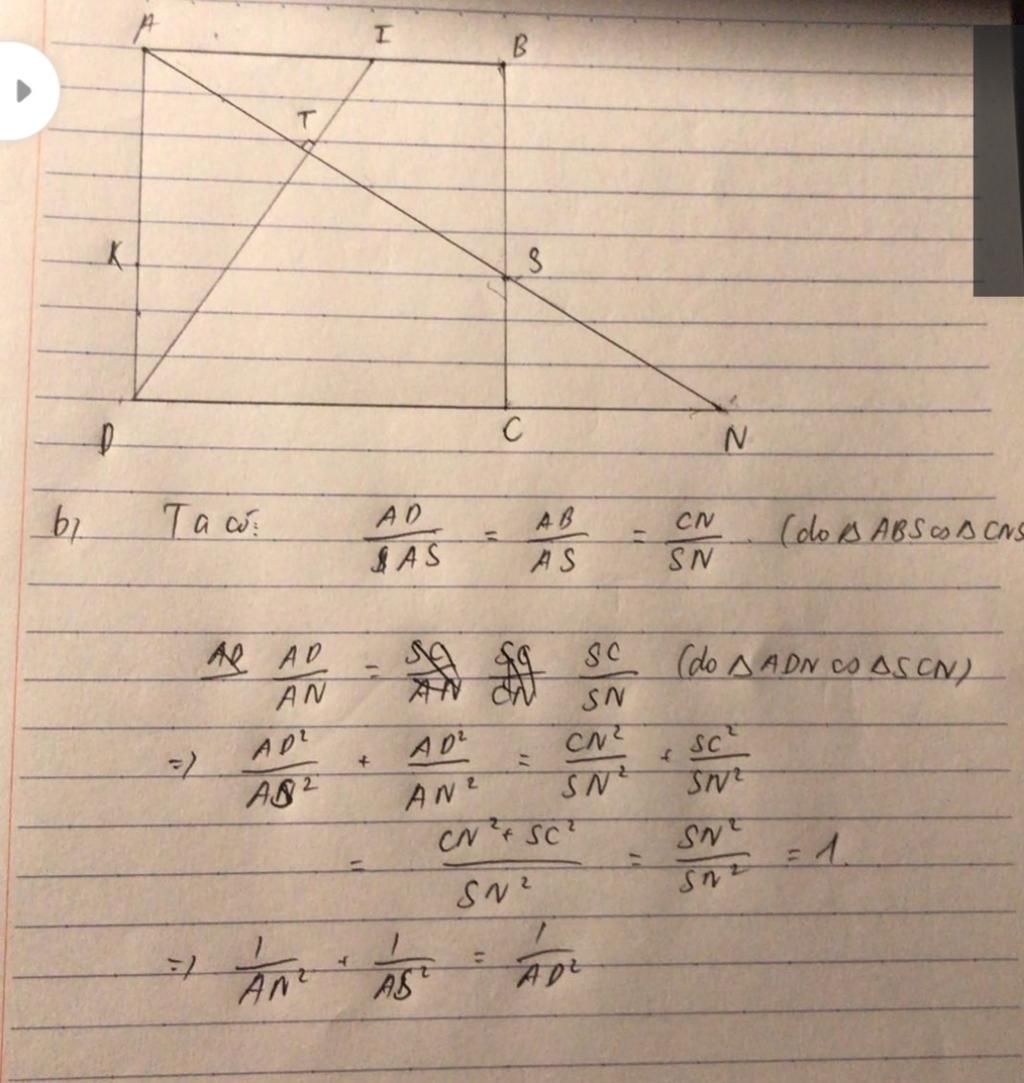 A I B
T
K S
D C N
b, Ta có: AD/AS = AB/AS = CN/SN. (do Δ ABS ∽ Δ CNS
AD/AN = SC/SN (do Δ ADN ∽ Δ SCN)
=) AD²/AS² + AD²/AN² = CN²/SN² + SC²/SN²
= (CN² + SC²)/SN² = SN²/SN² = 1.
=) 1/AN² + 1/AS² = 1/AD²